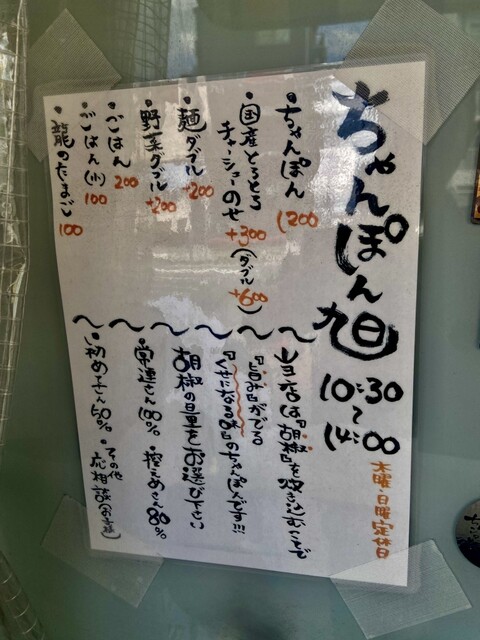 ちゃんぽん 旭
10:30
〜
14:00
木曜・日曜定休日
・ちゃんぽん 1200
・国産とろとろ
チャーシューのせ +300 (ダブル +600)
・麺ダブル +200
・野菜ダブル +200
・ごはん 200
・ごはん(小) 100
・龍のたまご 100
当店は『胡椒』を炊き込むことで
『旨み』がでる
『くせになる味』のちゃんぽんです!!!
胡椒の量をお選び下さい
・常連さん 100% ・控えめさん 80%
・初めてさん 50% ・その他 応相談